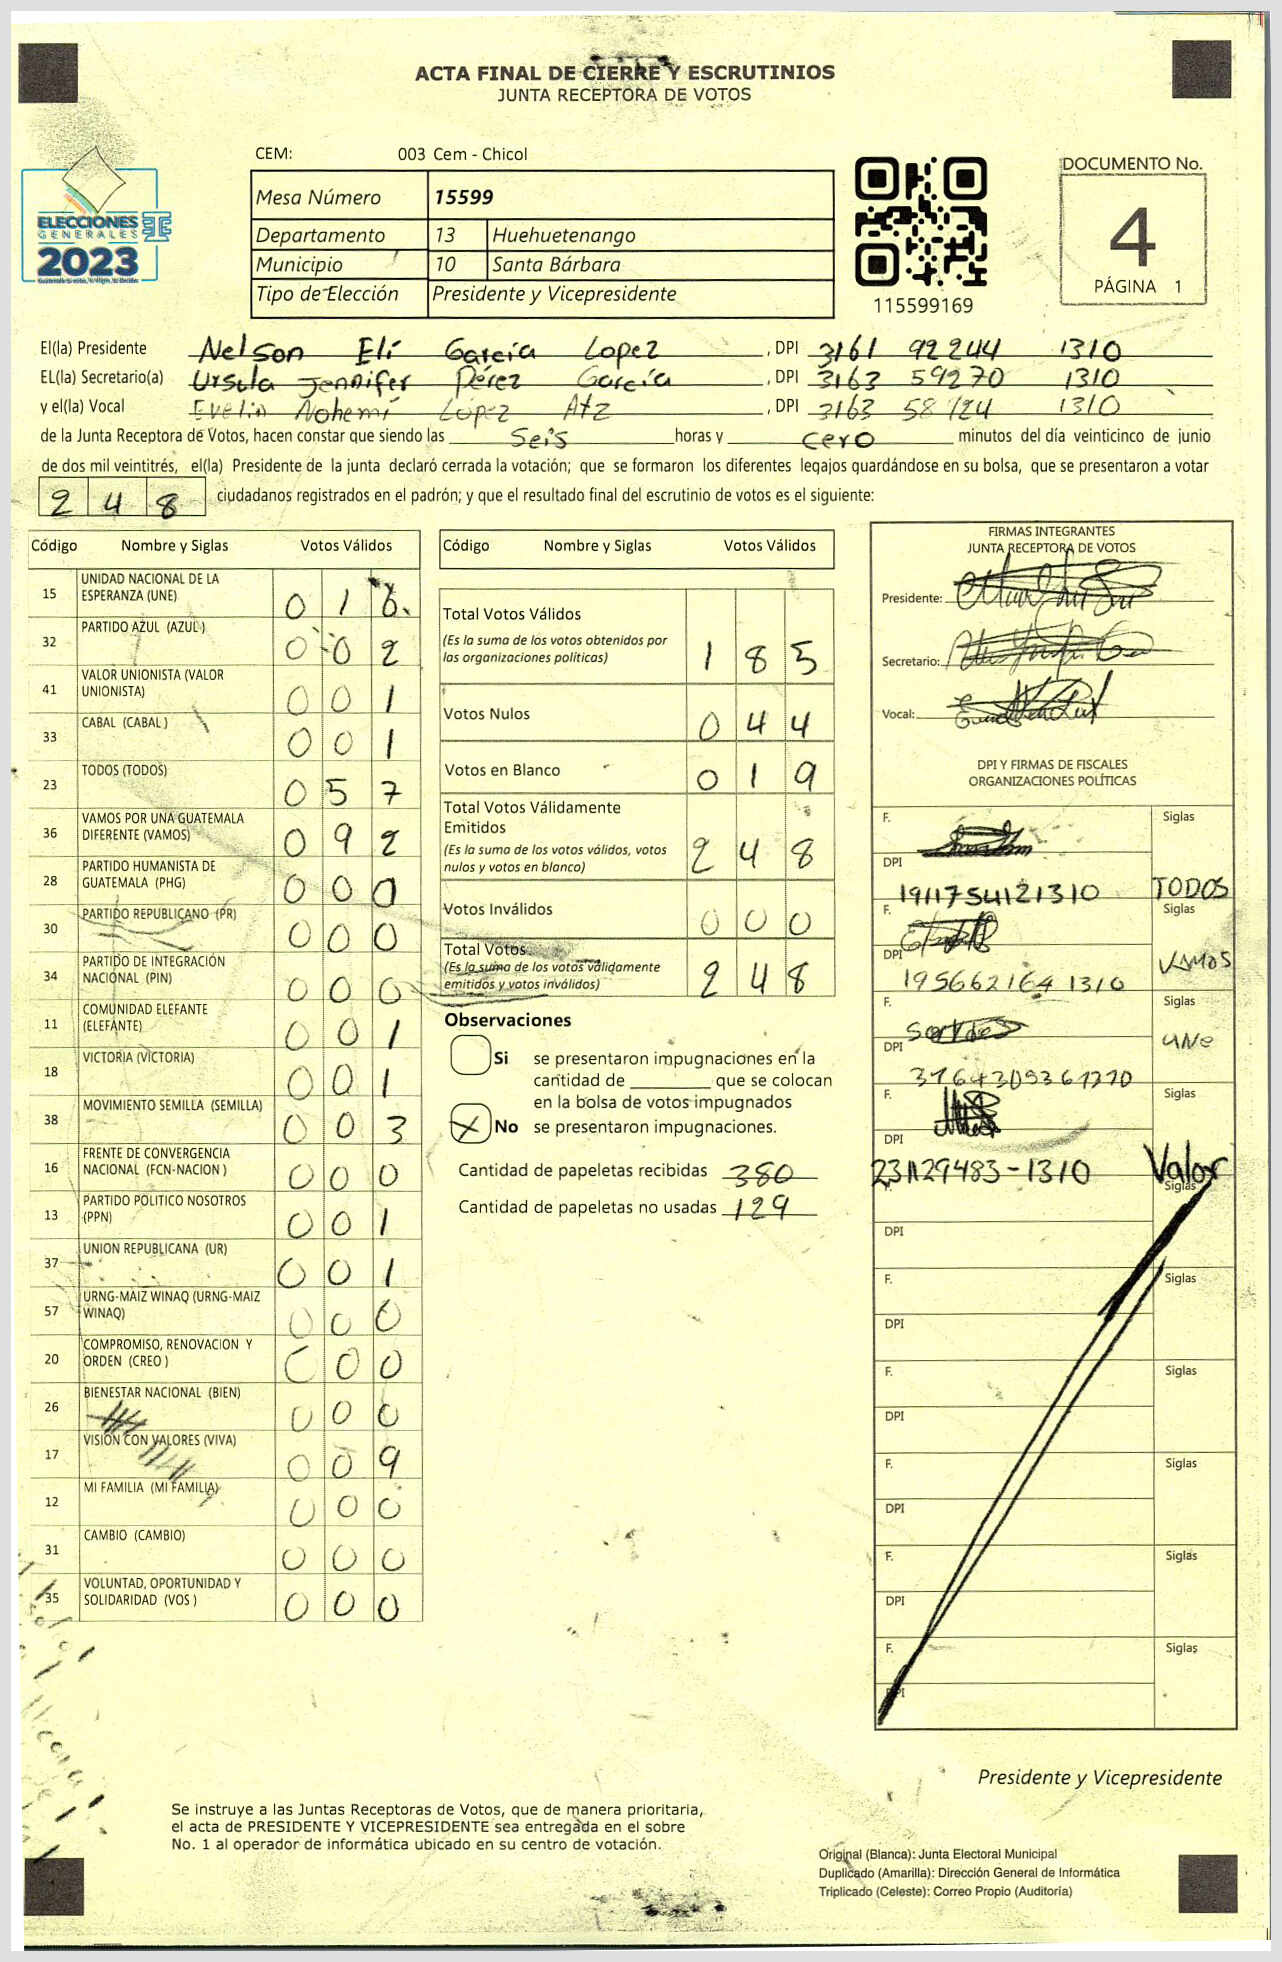 ACTA FINAL DE CIERRE Y ESCRUTINIOS
JUNTA RECEPTORA DE VOTOS
CEM: 003 Cem - Chicol
ELECCIONES
GENERALES
2023
Mesa Número 15599
Departamento 13 Huehuetenango
Municipio 10 Santa Bárbara
Tipo de Elección Presidente y Vicepresidente
115599169
DOCUMENTO No.
4
PÁGINA 1
El(la) Presidente Nelson Elí García Lopez, DPI 3161 92244 1310
EL(la) Secretario(a) Ursula Jennifer Pérez García, DPI 3163 59270 1310
y el(la) Vocal Evelin Nohemí López Atz, DPI 3163 58724 1310
de la Junta Receptora de Votos, hacen constar que siendo las Seis horas y cero minutos del día veinticinco de junio
de dos mil veintitrés, el(la) Presidente de la junta declaró cerrada la votación; que se formaron los diferentes legajos quardándose en su bolsa, que se presentaron a votar
248 ciudadanos registrados en el padrón; y que el resultado final del escrutinio de votos es el siguiente:
Código Nombre y Siglas Votos Válidos
15 UNIDAD NACIONAL DE LA ESPERANZA (UNE) 016
32 PARTIDO AZUL (AZUL) 002
41 VALOR UNIONISTA (VALOR UNIONISTA) 001
33 CABAL (CABAL) 001
23 TODOS (TODOS) 057
36 VAMOS POR UNA GUATEMALA DIFERENTE (VAMOS) 092
28 PARTIDO HUMANISTA DE GUATEMALA (PHG) 000
30 PARTIDO REPUBLICANO (PR) 000
34 PARTIDO DE INTEGRACIÓN NACIONAL (PIN) 000
11 COMUNIDAD ELEFANTE (ELEFANTE) 001
18 VICTORIA (VICTORIA) 001
38 MOVIMIENTO SEMILLA (SEMILLA) 003
16 FRENTE DE CONVERGENCIA NACIONAL (FCN-NACION) 000
13 PARTIDO POLITICO NOSOTROS (PPN) 001
37 UNION REPUBLICANA (UR) 001
57 URNG-MAIZ WINAQ (URNG-MAIZ WINAQ) 000
20 COMPROMISO, RENOVACION Y ORDEN (CREO) 000
26 BIENESTAR NACIONAL (BIEN) 000
17 VISION CON VALORES (VIVA) 009
12 MI FAMILIA (MI FAMILIA) 000
31 CAMBIO (CAMBIO) 000
35 VOLUNTAD, OPORTUNIDAD Y SOLIDARIDAD (VOS) 000
Código Nombre y Siglas Votos Válidos
Total Votos Válidos 185
(Es la suma de los votos obtenidos por
las organizaciones políticas)
Votos Nulos 044
Votos en Blanco 019
Total Votos Válidamente
Emitidos 248
(Es la suma de los votos válidos, votos
nulos y votos en blanco)
Votos Inválidos 000
Total Votos 248
(Es la suma de los votos válidamente
emitidos y votos inválidos)
Observaciones
Si se presentaron impugnaciones en la
cantidad de ________ que se colocan
en la bolsa de votos impugnados
X No se presentaron impugnaciones.
Cantidad de papeletas recibidas 380
Cantidad de papeletas no usadas 129
FIRMAS INTEGRANTES
JUNTA RECEPTORA DE VOTOS
Presidente:
Secretario:
Vocal:
DPI Y FIRMAS DE FISCALES
ORGANIZACIONES POLÍTICAS
F. Siglas
DPI
1911754121310 TODOS
F. Siglas
DPI
195662164 1310 VAMOS
F. Siglas
DPI UNe
3164309361310
F. Siglas
DPI
231129483-1310 Valor
F. Siglas
DPI
F. Siglas
DPI
F. Siglas
DPI
F. Siglas
DPI
F. Siglas
DPI
F. Siglas
DPI
Presidente y Vicepresidente
Se instruye a las Juntas Receptoras de Votos, que de manera prioritaria,
el acta de PRESIDENTE Y VICEPRESIDENTE sea entregada en el sobre
No. 1 al operador de informática ubicado en su centro de votación.
Original (Blanca): Junta Electoral Municipal
Duplicado (Amarilla): Dirección General de Informática
Triplicado (Celeste): Correo Propio (Auditoría)